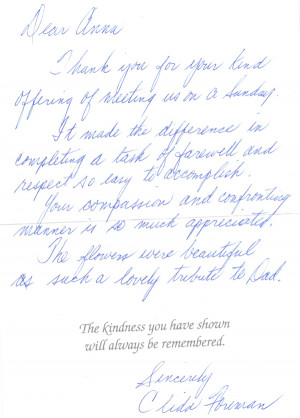 Dear Anna
Thank you for your kind
offering of meeting us on a Sunday.
It made the difference in
completing a task of farewell and
respect so easy to accomplish.
Your compassion and comfronting
manner is so much appreciated.
The flowers were beautiful
as such a lovely tribute to Dad.
The kindness you have shown
will always be remembered.
Sincerely
Foreman